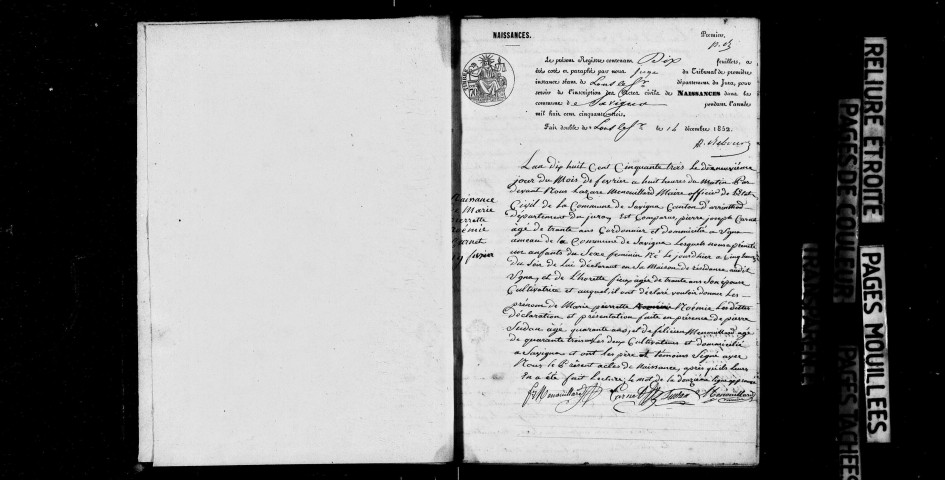 NAISSANCES.
Premier,
Le présent Registre contenant Dix feuillets, a
été coté et paraphé par nous Juge du Tribunal de première
instance séant de Lons le S.r département du Jura, pour
servir de l'inscription des Actes civils de NAISSANCES dans la
commune de Savigna pendant l'année
mil huit cent cinquante-trois.
Fait double de Lons le S.r le 14 décembre 1852.
Naissance
de Marie
pierrette
Noémie
Carnet
19 fevrier
L'an dix huit Cent Cinquante trois le dixneuvième
jour du Mois de fevrier a huit heures du Matin Par
devant Nous Lazare Menouillard Maire officier de l'état
Civil de la Commune de Savigna Canton d'arinthod
département du jura, Est Comparus, pierre joseph Carnet
âgé de trante ans Cordonnier et dommicilié a Vgna
ameau de la Commune de Savigna Lesquels nous a présenté
un anfants du Sexe feminin Né le jourd'hier a Cinq heures
du Soir de Lui déclarant en Sa Maison de résidance audit
Vgna, et de L'horette fieux, agée de trante ans Son épouse
Cultivatrice et auquel il ont déclaré vouloir donner Les
prénom de Marie pierrette Noémie Les dittes
déclaration et présentation faite en présence de pierre
âgé quarante ans, et de felicien Menouillard âgé
de quarante trois Les deux Cultivateurs et dommicilié
a Savigna et ont les père et témoins Signé avec
Nous le Présent actes de Naissance, après qu'il Leurs
En a été fait Lecture, le mot de la douzième ligne
Menouillard Carnet Menouillard
RELIURE ÉTROITE
PAGES DE COULEUR
PAGES MOUILLÉES
PAGES TACHÉES